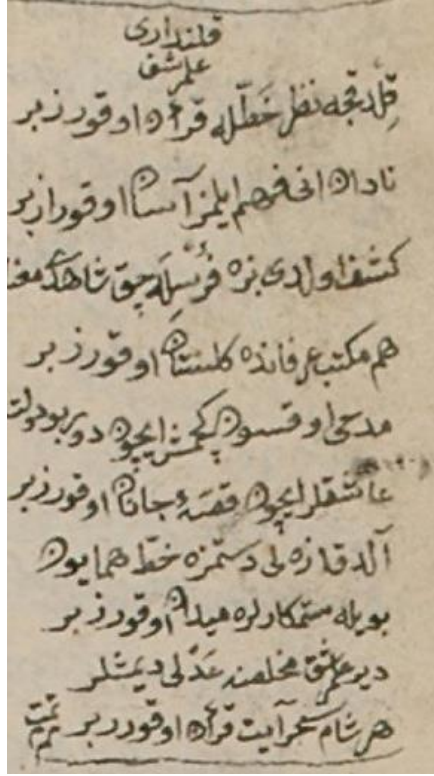 قلندری
عاشق عمر
قلدقجه نظر خطّله قرآن اوقورز بر
نادان انی فهم ایلمز آسان اوقورز بر
كشف اولدی بزه چق شاهد معنا
هم مكتب عرفانده كلستان اوقورز بر
مدحی اوقسون ایچون دولت
عاشقلر ایچون قصهٔ جانان اوقورز بر
آلدق دستمزه خط همایون
بویله ستمكارلره میدان اوقورز بر
دیر عاشق عمر مخلصنه عدلی دیمشلر
هر شام سحر آیت قرآن اوقورز بر تمت